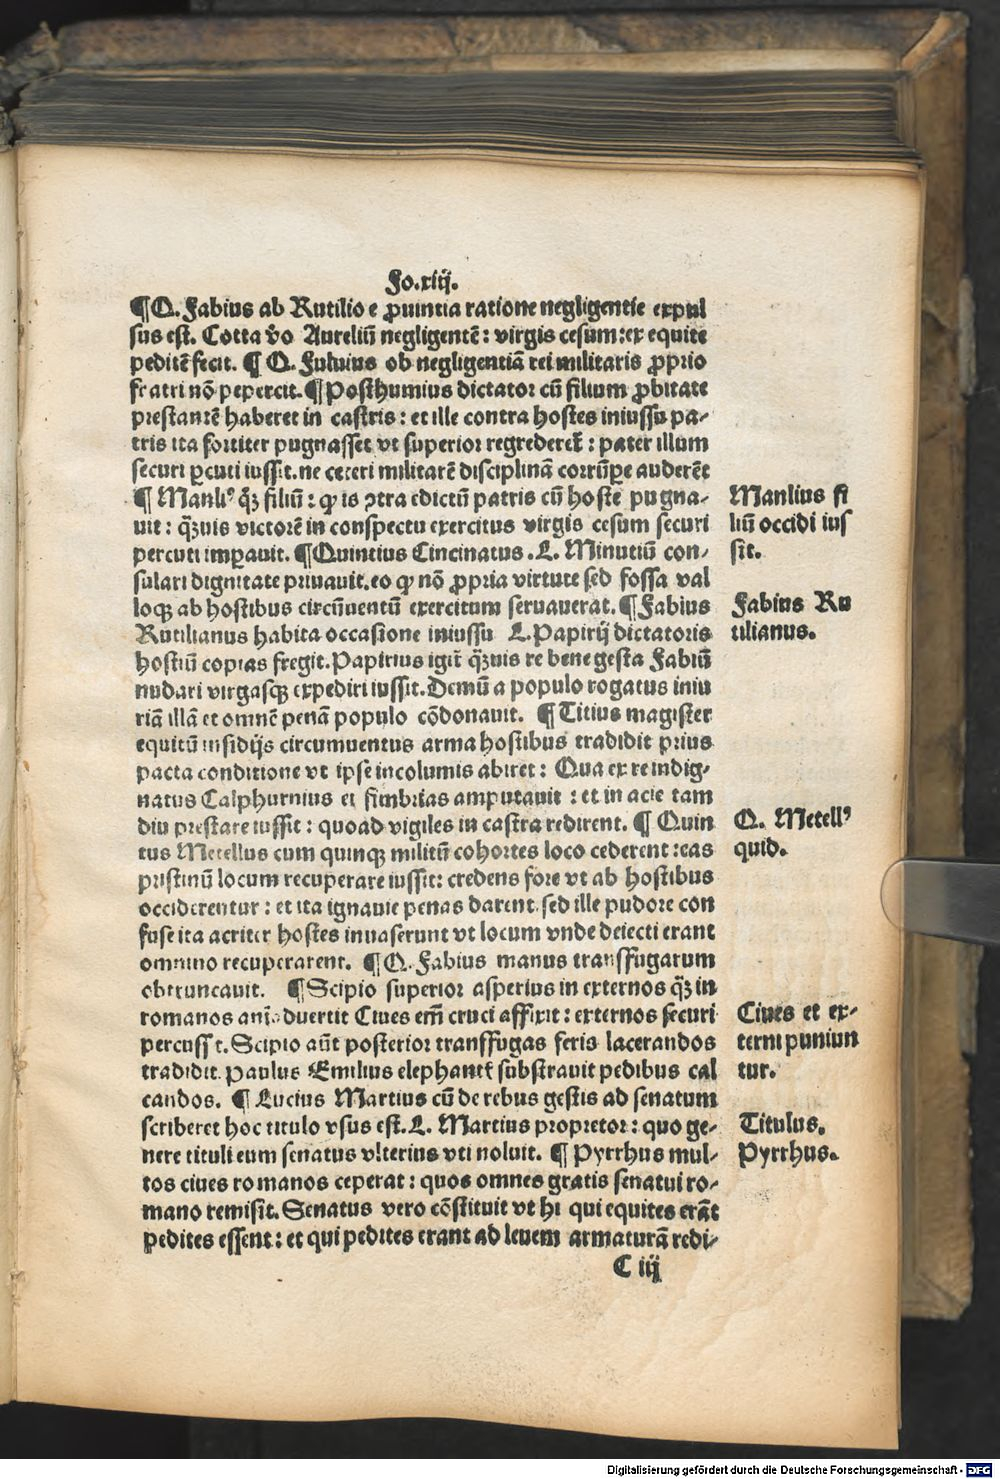 Fo.xiij.
¶Q. Fabius ab Rutilio e ꝓuintia ratione negligentie expul
sus est. Cotta v̄o Aureliū negligentē: virgis cesum: ex equite
peditē fecit. ¶ Q. Fuluius ob negligentiā rei militaris ꝓprio
fratri nō pepercit. ¶ Posthumius dictator cū filium ꝓbitate
prestantē haberet in castris: et ille contra hostes iniussu pa-
tris ita fortiter pugnasset vt superior regrederet̄: pater illum
securi ꝑcuti iussit. ne ceteri militarē disciplinā corrūꝑe auderēt
¶ Manliꝰ q̄ꝫ filiū: ꝙ is ꝯtra edictū patris cū hoste pugna-
uit: q̄ꝫuis victorē in conspectu exercitus virgis cesum securi
percuti imꝑauit. ¶Quintius Cincinatus .L. Minutiū con-
sulari dignitate priuauit. eo ꝙ nō ꝓpria virtute sed fossa val
loqꝫ ab hostibus circūuentū exercitum seruauerat. ¶Fabius
Rutilianus habita occasione iniussu L. Papirij dictatoris
hostiū copias fregit. Papirius igit̄ q̄ꝫuis re bene gesta Fabiū
nudari virgasqꝫ expediri iussit. Demū a populo rogatus iniu
riā illā et omnē penā populo cōdonauit. ¶ Titius magister
equitū insidijs circumuentus arma hostibus tradidit prius
pacta conditione vt ipse incolumis abiret: Qua ex re indig-
natus Calphurnius ei fimbrias amputauit: et in acie tam
diu prestare iussit: quoad vigiles in castra redirent. ¶ Quin
tus Metellus cum quinqꝫ militū cohortes loco cederent: eas
pristinū locum recuperare iussit: credens fore vt ab hostibus
occiderentur: et ita ignauie penas darent. sed ille pudore con
fuse ita acriter hostes inuaserunt vt locum vnde deiecti erant
omnino recuperarent. ¶ Q. Fabius manus transfugarum
obtruncauit. ¶ Scipio superior asperius in externos q̄ꝫ in
romanos aniaduertit Ciues em̄ cruci affixit: externos securi
percussit. Scipio aūt posterior transfugas feris lacerandos
tradidit. Paulus Emilius elephant̄ substrauit pedibus cal
candos. ¶ Lucius Martius cū de rebus gestis ad senatum
scriberet hoc titulo vsus est. L. Martius propretor: quo ge-
nere tituli eum senatus vlterius vti noluit. ¶ Pyrrhus mul-
tos ciues romanos ceperat: quos omnes gratis senatui ro-
mano remisit. Senatus vero cōstituit vt hi qui equites erāt
pedites essent: et qui pedites erant ad leuem armaturā redi-
C iij
Manlius fi
liū occidi ius
sit.
Fabius Ru
tilianus.
Q. Metellꝰ
quid.
Ciues et ex-
terni puniun
tur.
Titulus.
Pyrrhus.
Digitalisierung gefördert durch die Deutsche Forschungsgemeinschaft - DFG